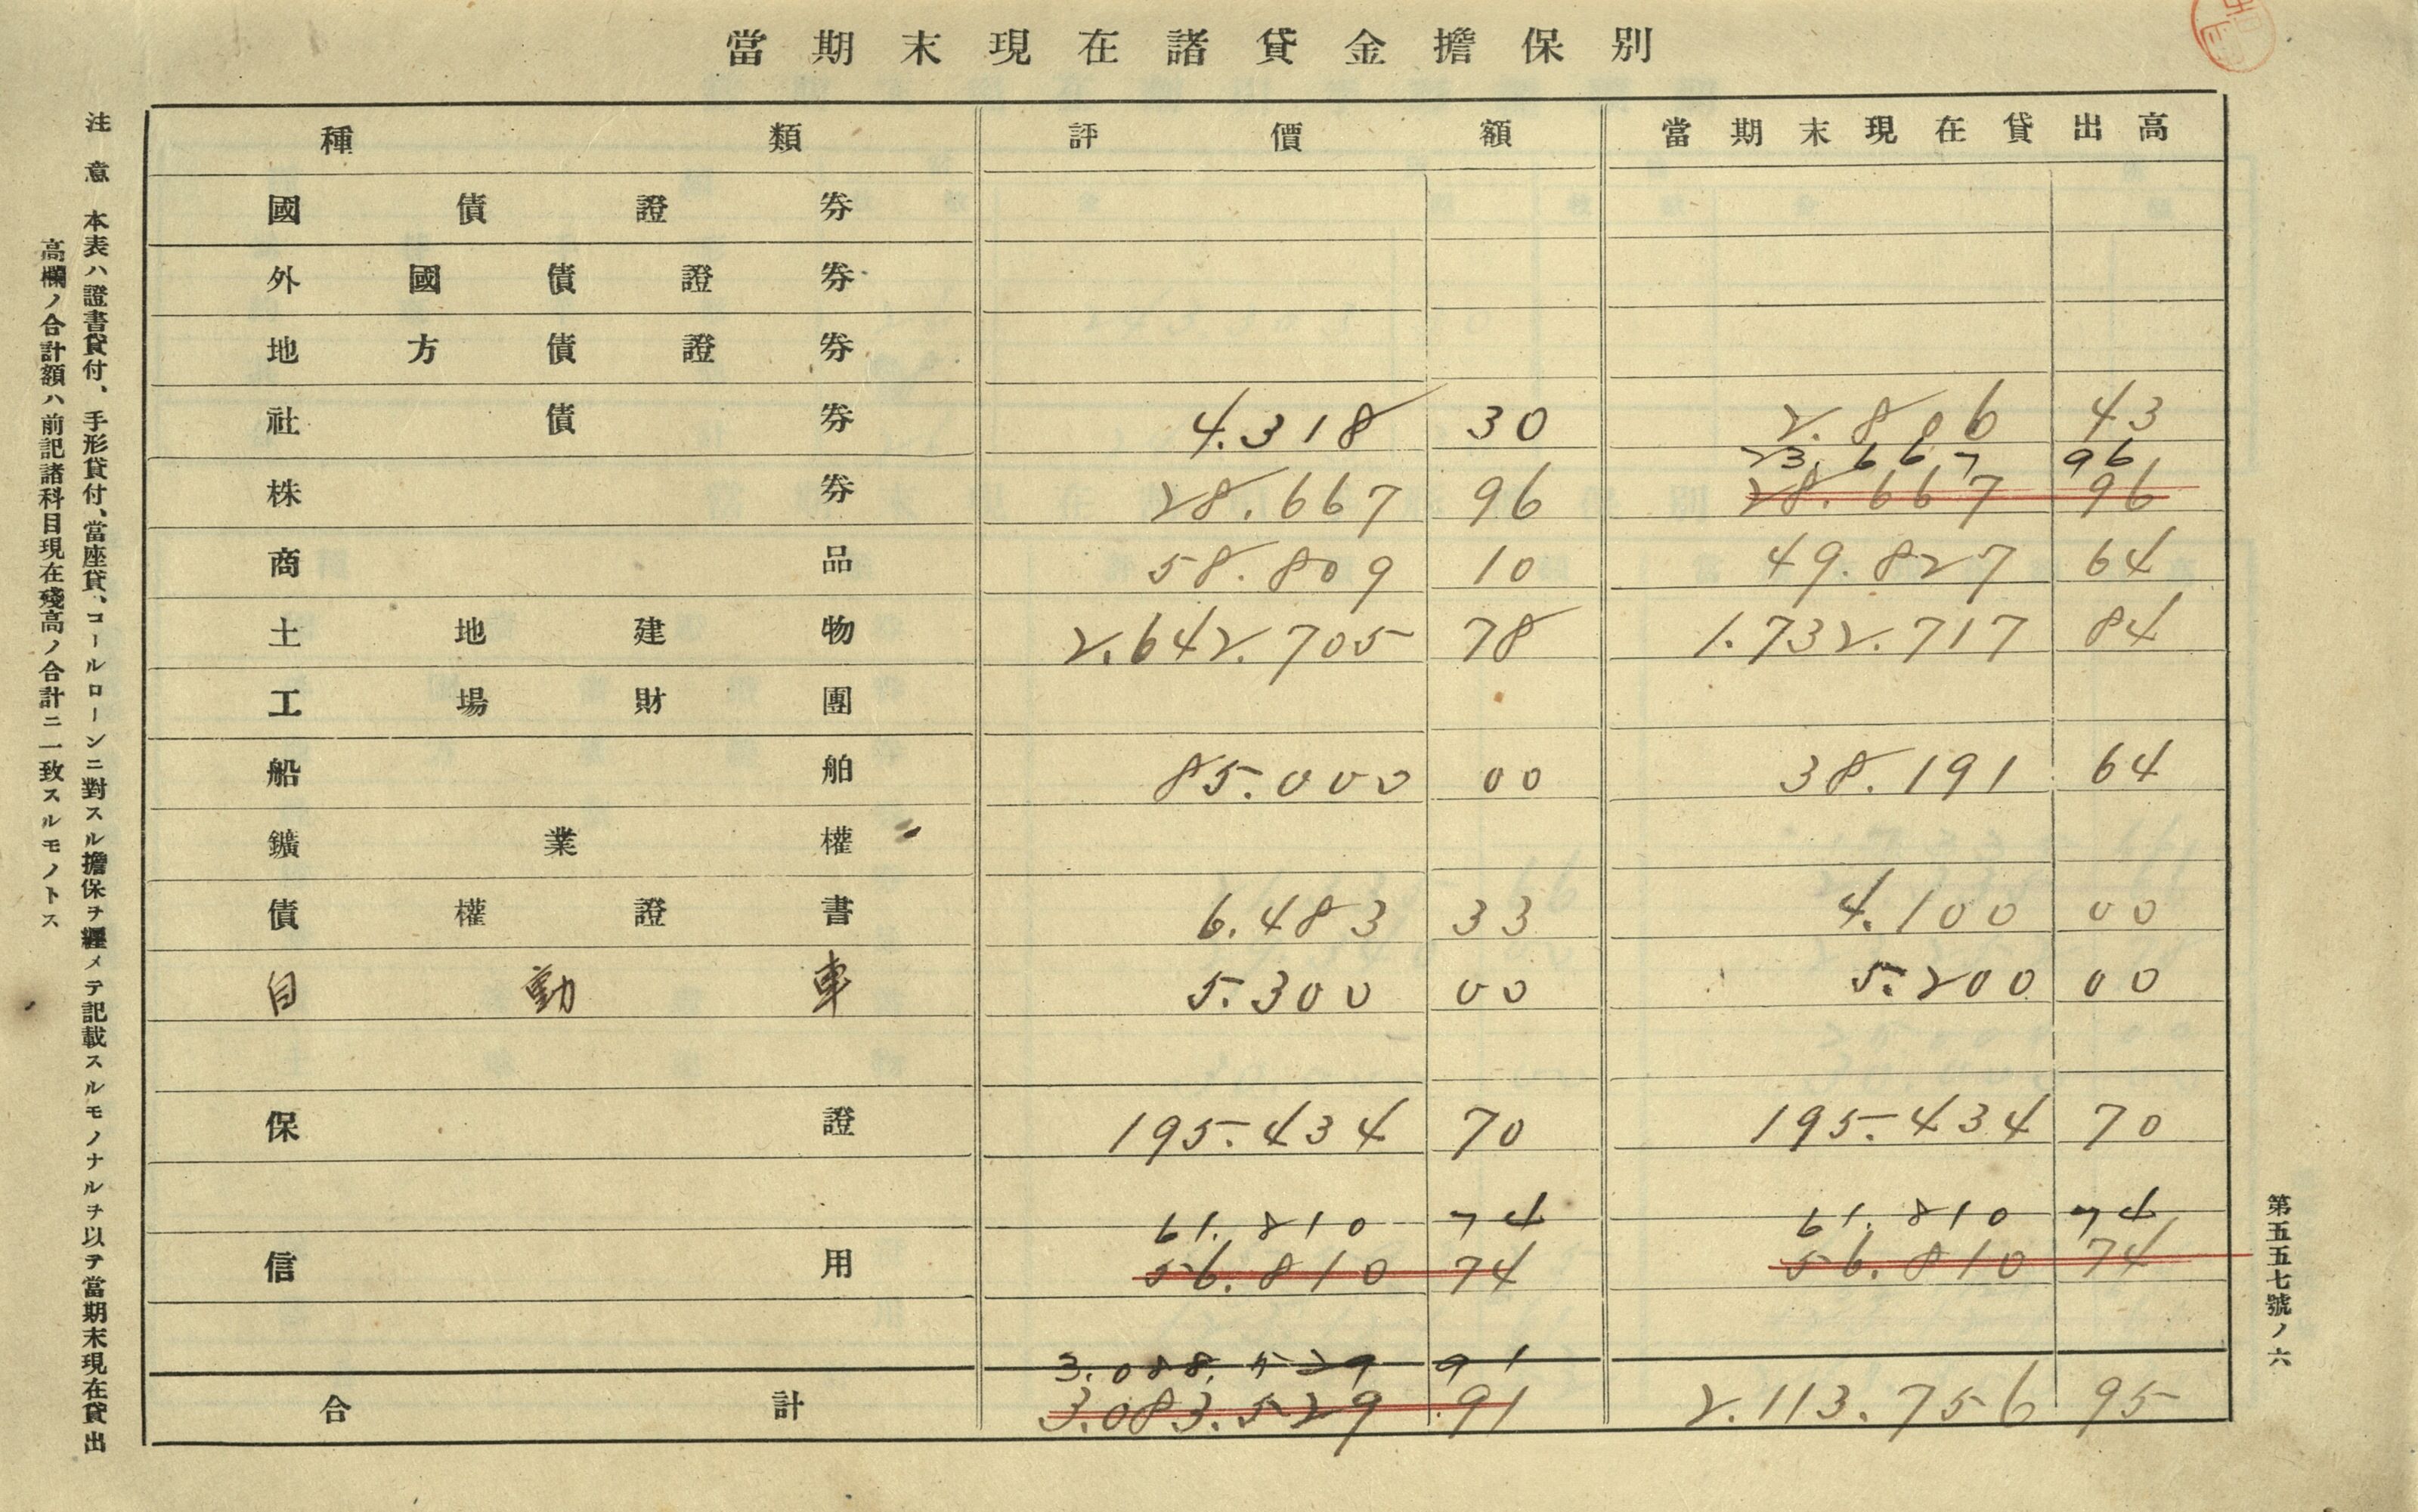 當期末現在諸貸金擔保別
種類 評價額 當期末現在貸出高
國債證券
外國債證券
地方債證券
社債券 4.318 30 2.806 43
23.667 96
株券 28.667 96 28.667 96
商品 58.809 10 49.827 64
土地建物 2.642.705 78 1.732.717 84
工場財團
船舶 85.000 00 38.191 64
鑛業權
債權證書 6.483 33 4.100 00
自動車 5.300 00 5.200 00
保證 195.434 70 195.434 70
61.810 74 61.810 74
信用 56.810 74 56.810 74
3.088.529 91
合計 3.083.529 91 2.113.756 95
第五五七號ノ六
注意 本表ハ證書貸付、手形貸付、當座貸、コールローンニ對スル擔保ヲ纒メテ記載スルモノナルヲ以テ當期末現在貸出
高欄ノ合計額ハ前記諸科目現在殘高ノ合計ニ一致スルモノトス